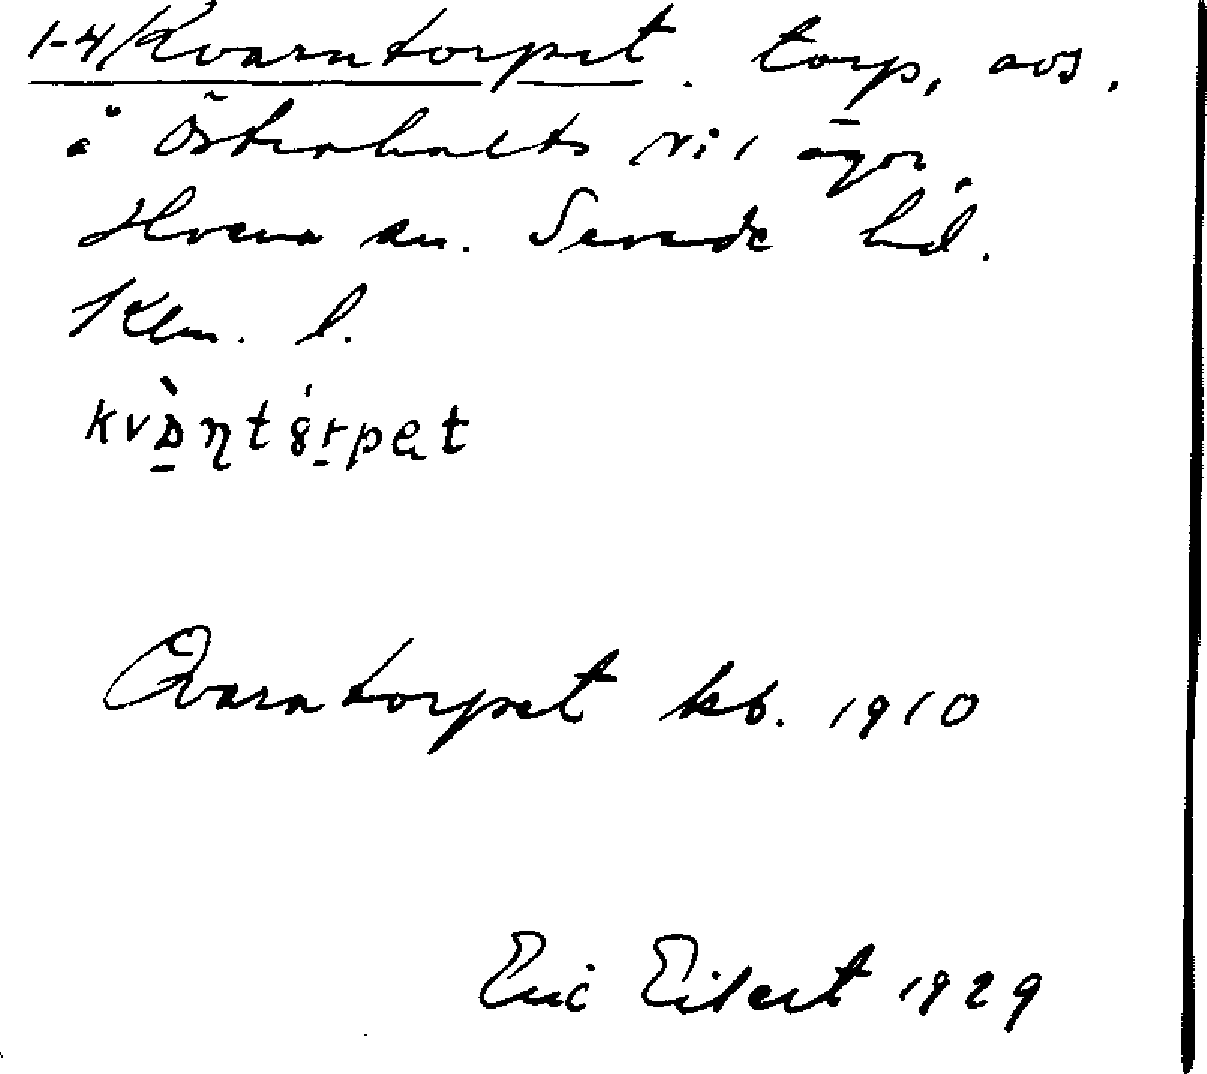 1-4/Kvarntorpet. torp, avs.
å Österhults N:1 ägor.
Hvena sn. Sevede hd.
Klm. l.
Qvarntorpet kb. 1910
Eric Eilert 1929